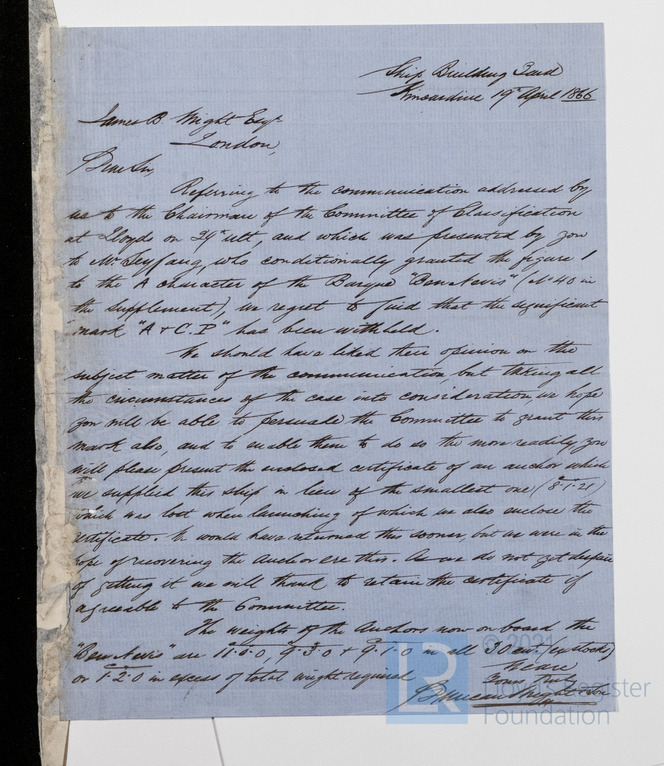 Ship Building Yard
Kincardine 19th April 1866
James B. Wright Esqr
London,
Dear Sir,
Referring to the communication addressed by
us to the Chairman of the Committee of Classification
at Lloyds on 29th ult, and which was presented by you
to Mr. Seyfang, who conditionally granted the figure 1
to the A character of the Barque "Ben Nevis" (No 40 in
the supplement), we regret to find that the significant
mark "A & C.P" has been withheld.
We should have liked their opinion on the
subject matter of the communication, but taking all
the circumstances of the case into consideration we hope
you will be able to persuade the Committee to grant this
mark also, and to enable them to do so the more readily you
will please present the enclosed certificate of an anchor which
we supplied this ship in lieu of the smallest one (8.1.21)
which was lost when launching of which we also enclose the
certificate. We would have returned this sooner but we were in the
hope of recovering the Anchor ere this. As we do not yet despair
of getting it we will thank to retain the certificate if
agreeable to the Committee.
The weights of the Anchors now on board the
"Ben Nevis" are 9.3.0 & 9.1.0 in all 30 cwt (ex stocks)
or 1.2.0 in excess of total weight required
We are
Yours truly
Duncan Wright
© 2021
LR
Lloyd's Register
Foundation